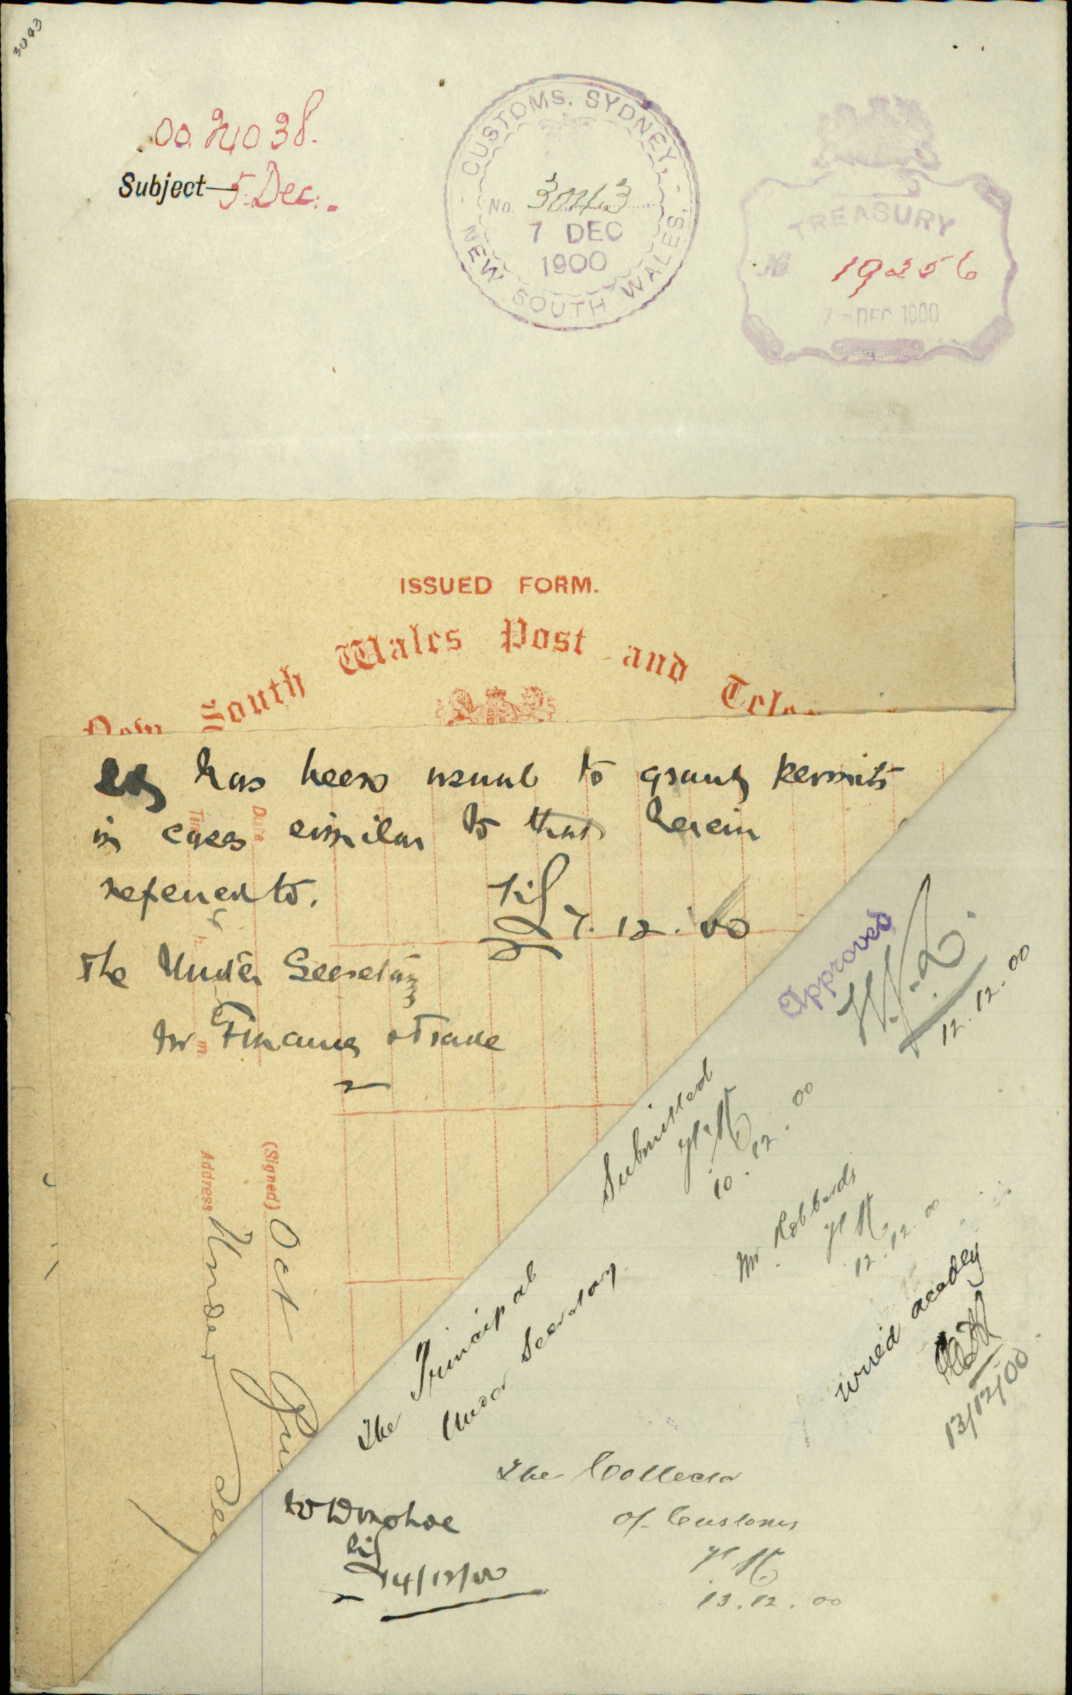 3043
00.24038.
Subject 5. Dec.
CUSTOMS. SYDNEY.
NEW SOUTH WALES.
No. 3043
7 DEC
1900
TREASURY
No 19256
7 - DEC 1900
ISSUED FORM.
New South Wales Post and Tele
It has been usual to grant permits
in cases similar to that herein
referred to.
7.12.'00
The Under Secretary
for Finance & Trade
Date
(Signed)
Address
Under Sec
Approved
12.12.00
Submitted
10.12.00
The Principal
Under Secretary
Mr Robbards
12.12.00
Wired accdly
13/12/00
The Collector
of Customs
13.12.00
Mr Donohoe
14/12/00